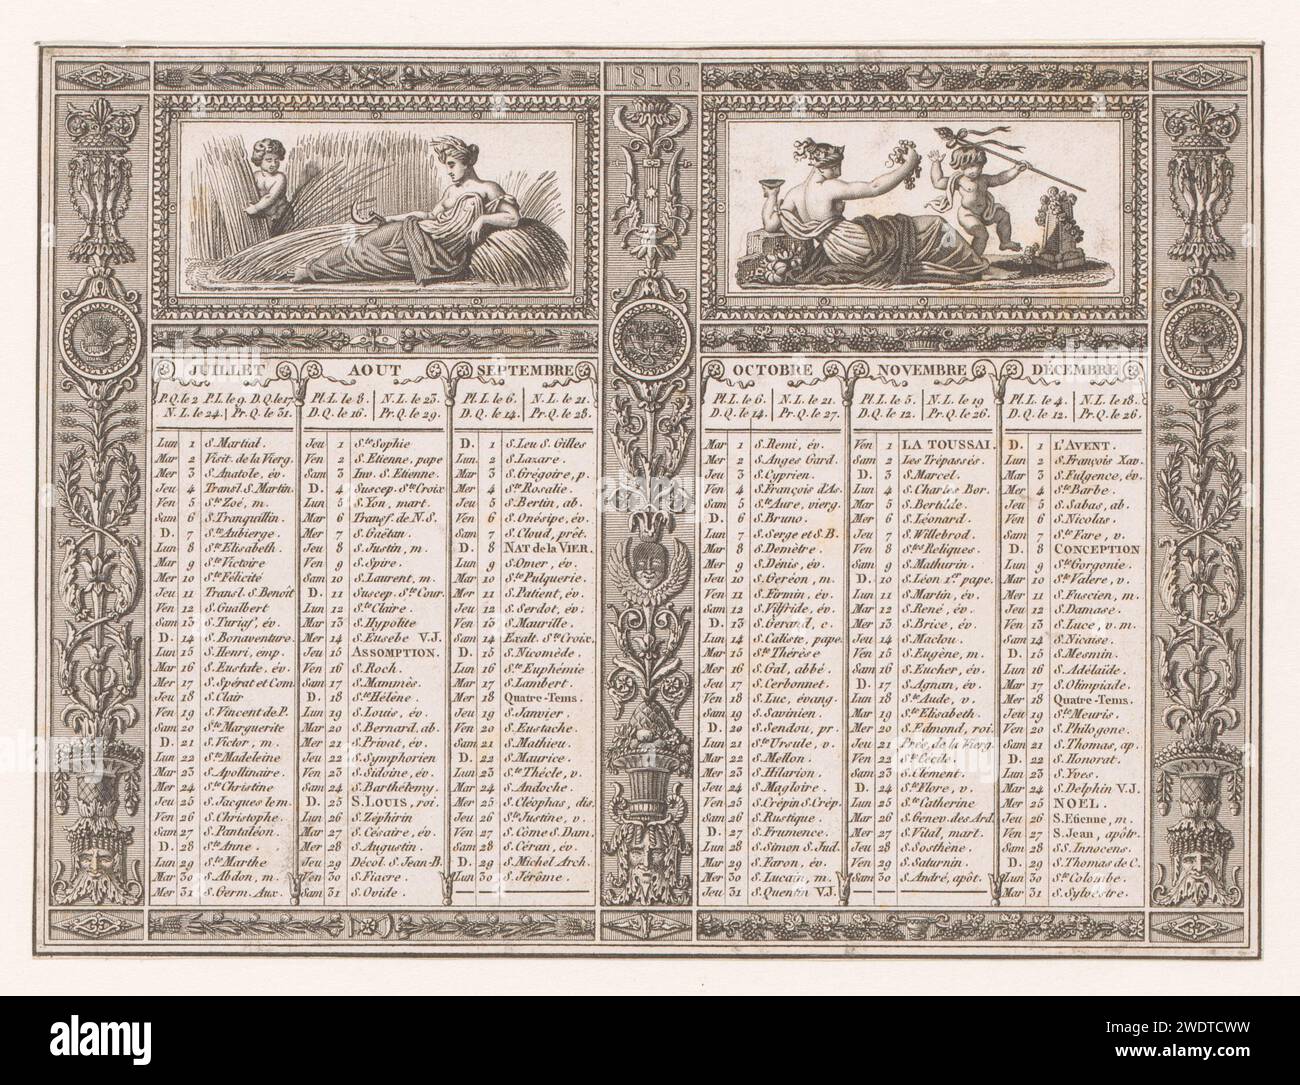 1816.
JUILLET
P.Q. le 2 P.L. le 9 D.Q. le 17
N.L. le 24. Pr.Q. le 31.
Lun 1 S. Martial.
Mar 2 Visit. de la Vierg.
Mer 3 S. Anatole, év.
Jeu 4 Transl. S. Martin.
Ven 5 Ste Zoé, m.
Sam 6 S. Tranquillin.
D. 7 Ste Aubierge.
Lun 8 Ste Elisabeth.
Mar 9 Ste Victoire
Mer 10 Ste Félicité
Jeu 11 Transl. S. Benoît
Ven 12 S. Gualbert
Sam 13 S. Turiaf, év.
D. 14 S. Bonaventure.
Lun 15 S. Henri, emp.
Mar 16 S. Eustate, év.
Mer 17 S. Spérat et Com.
Jeu 18 S. Clair
Ven 19 S. Vincent de P.
Sam 20 Ste Marguerite
D. 21 S. Victor, m.
Lun 22 Ste Madeleine
Mar 23 S. Apollinaire.
Mer 24 Ste Christine
Jeu 25 S. Jacques le m.
Ven 26 S. Christophe.
Sam 27 S. Pantaléon.
D. 28 Ste Anne.
Lun 29 Ste Marthe
Mar 30 S. Abdon, m.
Mer 31 S. Germ. Aux.
AOUT
Pl. L. le 8. N.L. le 23.
D.Q. le 16. Pr.Q. le 29.
Jeu 1 Ste Sophie
Ven 2 S. Etienne, pape
Sam 3 Inv. S. Etienne.
D. 4 Suscep. Ste Croix
Lun 5 S. Yon, mart.
Mar 6 Transf. de N.S.
Mer 7 S. Gaëtan.
Jeu 8 S. Justin, m.
Ven 9 S. Spire.
Sam 10 S. Laurent, m.
D. 11 Suscep. Ste Cour.
Lun 12 Ste Claire.
Mar 13 S. Hypolite
Mer 14 S. Eusebe V.J.
Jeu 15 ASSOMPTION.
Ven 16 S. Roch.
Sam 17 S. Mammès.
D. 18 Ste Hélène.
Lun 19 S. Louis, év.
Mar 20 S. Bernard, ab.
Mer 21 S. Privat, év.
Jeu 22 S. Symphorien
Ven 23 S. Sidoine, év.
Sam 24 S. Barthélemy.
D. 25 S. LOUIS, roi.
Lun 26 S. Zéphirin
Mar 27 S. Césaire, év.
Mer 28 S. Augustin.
Jeu 29 Décol. S. Jean-B.
Ven 30 S. Fiacre.
Sam 31 S. Ovide.
SEPTEMBRE
Pl. L. le 6. N.L. le 21.
D.Q. le 14. Pr.Q. le 28.
D. 1 S. Leu S. Gilles
Lun 2 S. Lazare.
Mar 3 S. Grégoire, p.
Mer 4 Ste Rosalie.
Jeu 5 S. Bertin, ab.
Ven 6 S. Onésipe, év.
Sam 7 S. Cloud, prêt.
D. 8 NAT de la VIER.
Lun 9 S. Omer, év.
Mar 10 Ste Pulquerie.
Mer 11 S. Patient, év.
Jeu 12 S. Serdot, év.
Ven 13 S. Maurille.
Sam 14 Exalt. Ste Croix.
D. 15 S. Nicomède.
Lun 16 Ste Euphémie
Mar 17 S. Lambert.
Mer 18 Quatre-Tems.
Jeu 19 S. Janvier.
Ven 20 S. Eustache.
Sam 21 S. Mathieu.
D. 22 S. Maurice.
Lun 23 Ste Thècle, v.
Mar 24 S. Andoche.
Mer 25 S. Cléophas, dis.
Jeu 26 Ste Justine, v.
Ven 27 S. Côme S. Dam.
Sam 28 S. Céran, év.
D. 29 S. Michel Arch.
Lun 30 S. Jérôme.
OCTOBRE
Pl. L. le 6. N.L. le 21.
D.Q. le 14. Pr.Q. le 27.
Mar 1 S. Remi, év.
Mer 2 S. Anges Gard.
Jeu 3 S. Cyprien.
Ven 4 S. François d'As.
Sam 5 Ste Aure, vierg.
D. 6 S. Bruno.
Lun 7 S. Serge et S. B.
Mar 8 S. Demètre.
Mer 9 S. Dénis, év.
Jeu 10 S. Geréon, m.
Ven 11 S. Firmin, év.
Sam 12 S. Vilfride, év.
D. 13 S. Gerand, c.
Lun 14 S. Caliste, pape.
Mar 15 Ste Thérèse
Mer 16 S. Gal, abbé.
Jeu 17 S. Cerbonnet.
Ven 18 S. Luc, évang.
Sam 19 S. Savinien.
D. 20 S. Sendou, pr.
Lun 21 Ste Ursule, v.
Mar 22 S. Mellon.
Mer 23 S. Hilarion.
Jeu 24 S. Magloire.
Ven 25 S. Crépin S. Crép.
Sam 26 S. Rustique.
D. 27 S. Frumence.
Lun 28 S. Simon S. Jud.
Mar 29 S. Faron, év.
Mer 30 S. Lucain, m.
Jeu 31 S. Quentin V.J.
NOVEMBRE
Pl. L. le 5. N.L. le 19
D.Q. le 12. Pr.Q. le 26.
Ven 1 LA TOUSSAI.
Sam 2 Les Trépassés.
D. 3 S. Marcel.
Lun 4 S. Charles Bor.
Mar 5 S. Berthile.
Mer 6 S. Léonard.
Jeu 7 S. Willebrod.
Ven 8 Stes Reliques.
Sam 9 S. Mathurin.
D. 10 S. Léon 1er pape.
Lun 11 S. Martin, év.
Mar 12 S. René, év.
Mer 13 S. Brice, év.
Jeu 14 S. Maclou.
Ven 15 S. Eugène, m.
Sam 16 S. Eucher, év.
D. 17 S. Agnan, év.
Lun 18 Ste Aude, v.
Mar 19 Ste Elisabeth.
Mer 20 S. Edmond, roi.
Jeu 21 Prés. de la Vierg.
Ven 22 Ste Cécile.
Sam 23 S. Clément.
D. 24 Ste Flore, v.
Lun 25 Ste Catherine
Mar 26 S. Genev. des Ard.
Mer 27 S. Vital, mart.
Jeu 28 S. Sosthène.
Ven 29 S. Saturnin.
Sam 30 S. André, apôt.
DÉCEMBRE
Pl. L. le 4. N.L. le 18.
D.Q. le 12. Pr.Q. le 26.
D. 1 L'AVENT.
Lun 2 S. François Xav.
Mar 3 S. Fulgence, év.
Mer 4 Ste Barbe.
Jeu 5 S. Sabas, ab.
Ven 6 S. Nicolas.
Sam 7 Ste Fare, v.
D. 8 CONCEPTION
Lun 9 Ste Gorgonie.
Mar 10 Ste Valere, v.
Mer 11 S. Fuscien, m.
Jeu 12 S. Damase.
Ven 13 S. Luce, v. m.
Sam 14 S. Nicaise.
D. 15 S. Mesmin.
Lun 16 S. Adélaïde.
Mar 17 S. Olimpiade.
Mer 18 Quatre-Tems.
Jeu 19 Ste Meuris.
Ven 20 S. Philogone.
Sam 21 S. Thomas, ap.
D. 22 S. Honorat.
Lun 23 S. Yves.
Mar 24 S. Delphin V.J.
Mer 25 NOEL.
Jeu 26 S. Etienne, m.
Ven 27 S. Jean, apôtr.
Sam 28 SS. Innocens.
D. 29 S. Thomas de C.
Lun 30 Ste Colombe.
Mar 31 S. Sylvestre.
alamy
Image ID: 2WDTCWW
www.alamy.com